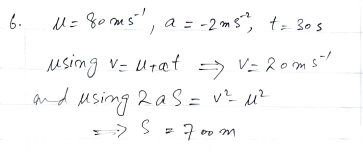 6. u = 80 ms⁻¹, a = -2 ms⁻², t = 30 s
using v = u+at ⟹ v = 20 ms⁻¹
and using 2aS = v² - u²
⟹ S = 700 m